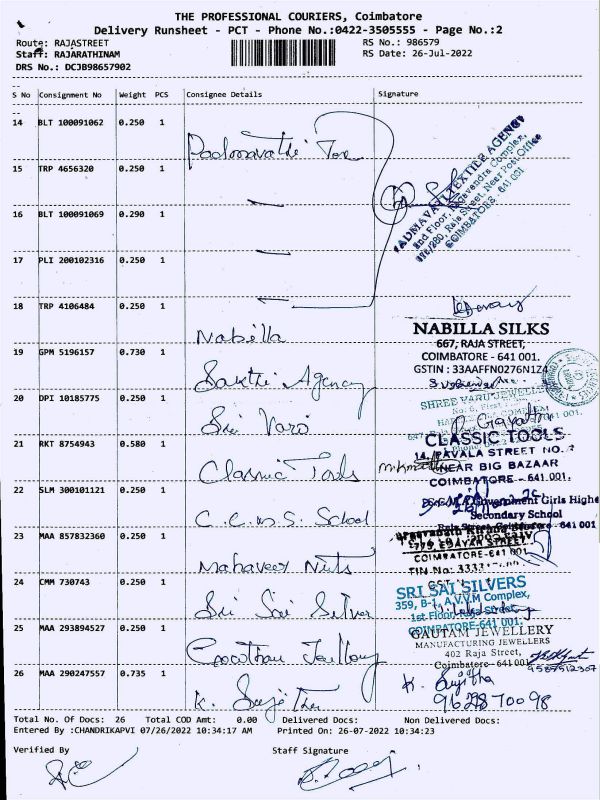 THE PROFESSIONAL COURIERS, Coimbatore
Delivery Runsheet - PCT - Phone No.:0422-3505555 - Page No.:2
Route: RAJASTREET
RS No.: 986579
Staff: RAJARATHINAM
RS Date: 26-Jul-2022
DRS No.: DCJB98657902
S No Consignment No Weight PCS Consignee Details Signature
14 BLT 100091062 0.250 1
Padmavathi Tex
15 TRP 4656320 0.250 1
PADMAVATI TEXTILE AGENCY
2nd Floor, Ragavendra Complex,
Raja Street, Near Post Office
COIMBATORE - 641 001
16 BLT 100091069 0.290 1
17 PLI 200102316 0.250 1
18 TRP 4106484 0.250 1
Nabilla
NABILLA SILKS
667, RAJA STREET,
COIMBATORE - 641 001.
GSTIN : 33AAFFN0276N1Z4
19 GPM 5196157 0.730 1
Sakthi Agency
20 DPI 10185775 0.250 1
Sri Vari
SHREE VARU JEWELL
No: 6, First
641 001.
21 RKT 8754943 0.580 1
Classic Tools
CLASSIC TOOLS
14, PAVALA STREET NO.
NEAR BIG BAZAAR
COIMBATORE - 641 001.
22 SLM 300101121 0.250 1
C.C.M.S. School
Government Girls Highe
Secondary School
641 001
23 MAA 857832360 0.250 1
Mahaveer Nuts
EDAYAR STREET
COIMBATORE-641 001
TIN No: 3333
24 CMM 730743 0.250 1
Sri Sai Silver
SRI SAI SILVERS
359, B-1, A.V.M Complex,
1st Floor, Raja Street,
COIMBATORE-641 001.
25 MAA 293894527 0.250 1
Gowtham
GAUTAM JEWELLERY
MANUFACTURING JEWELLERS
402 Raja Street,
Coimbatore- 641 001
26 MAA 290247557 0.735 1
K. Sujitha
K. Sujitha
9629870098
Total No. Of Docs: 26 Total COD Amt: 0.00 Delivered Docs: Non Delivered Docs:
Entered By :CHANDRIKAPVI 07/26/2022 10:34:17 AM Printed On: 26-07-2022 10:34:23
Verified By Staff Signature